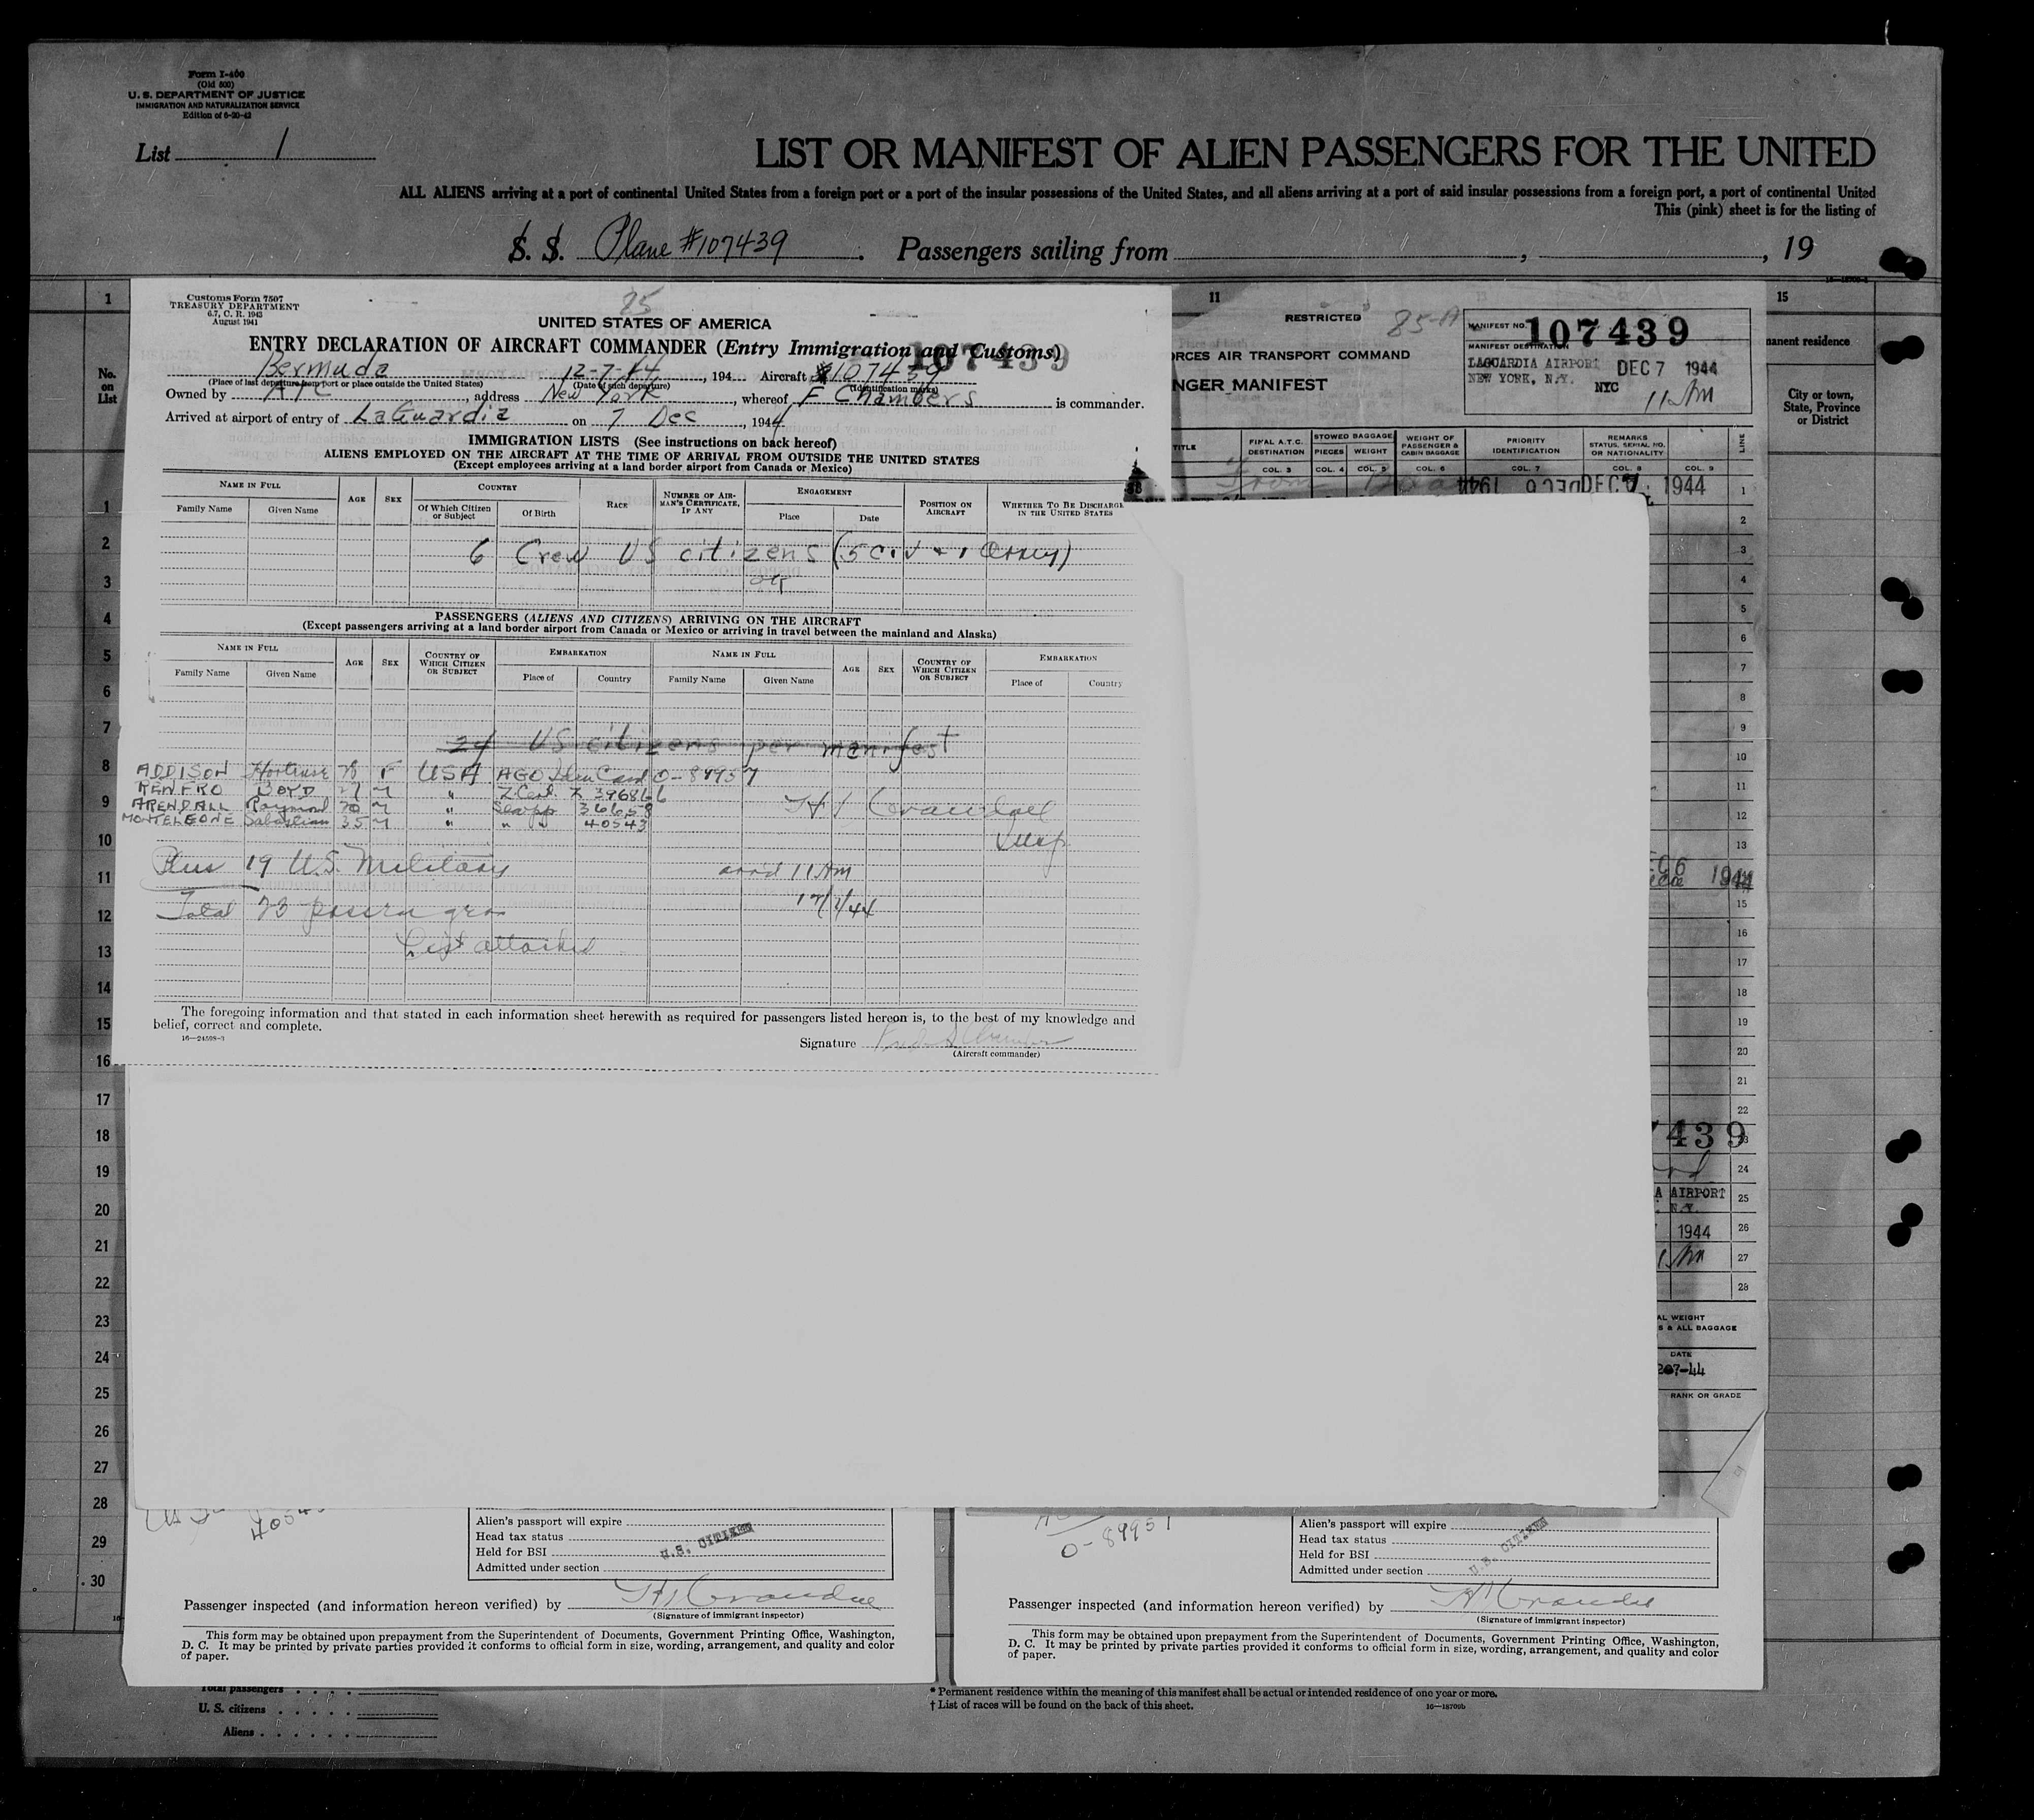 Form I-400
(Old 500)
U. S. DEPARTMENT OF JUSTICE
IMMIGRATION AND NATURALIZATION SERVICE
Edition of 6-20-42
List 1
LIST OR MANIFEST OF ALIEN PASSENGERS FOR THE UNITED
ALL ALIENS arriving at a port of continental United States from a foreign port or a port of the insular possessions of the United States, and all aliens arriving at a port of said insular possessions from a foreign port, a port of continental United
This (pink) sheet is for the listing of
S. S. Plane #107439. Passengers sailing from , , 19
1 11 15
manent residence
No. on List
City or town, State, Province or District
Customs Form 7507
TREASURY DEPARTMENT
6.7, C. R. 1943
August 1941
85
UNITED STATES OF AMERICA
ENTRY DECLARATION OF AIRCRAFT COMMANDER (Entry Immigration and Customs)
107439
Bermuda 12-7-44, 194 Aircraft #107439
(Place of last departure from port or place outside the United States) (Date of such departure) (Identification marks)
Owned by ATC, address New York, whereof F Chambers is commander.
Arrived at airport of entry of LaGuardia on 7 Dec, 1944
IMMIGRATION LISTS (See instructions on back hereof)
ALIENS EMPLOYED ON THE AIRCRAFT AT THE TIME OF ARRIVAL FROM OUTSIDE THE UNITED STATES
(Except employees arriving at a land border airport from Canada or Mexico)
NAME IN FULL AGE SEX COUNTRY RACE NUMBER OF AIRMAN'S CERTIFICATE, IF ANY ENGAGEMENT POSITION ON AIRCRAFT WHETHER TO BE DISCHARGE IN THE UNITED STATES
Family Name Given Name Of Which Citizen or Subject Of Birth Place Date
6 Crew US citizens (5 civ + 1 Army)
PASSENGERS (ALIENS AND CITIZENS) ARRIVING ON THE AIRCRAFT
(Except passengers arriving at a land border airport from Canada or Mexico or arriving in travel between the mainland and Alaska)
NAME IN FULL AGE SEX COUNTRY OF WHICH CITIZEN OR SUBJECT EMBARKATION NAME IN FULL AGE SEX COUNTRY OF WHICH CITIZEN OR SUBJECT EMBARKATION
Family Name Given Name Place of Country Family Name Given Name Place of Country
24 US citizens per manifest
ADDISON Hortense F USA AGO Iden Card O-89957
RENFRO BOYD 27 M " Z Cert. Z 396866
ARENDALL Raymond 20 M " Sea pp 36658
MONTELEONE Sabastian 35 M " " 40543
H Crandall
Insp
Plus 19 U.S. Military arr'd 11 AM
Total 23 passengers 12/7/44
List attached
The foregoing information and that stated in each information sheet herewith as required for passengers listed hereon is, to the best of my knowledge and
belief, correct and complete.
16—24598-3
Signature
(Aircraft commander)
RESTRICTED 85-A
ORCES AIR TRANSPORT COMMAND
NGER MANIFEST
MANIFEST NO. 107439
MANIFEST DESTINATION
LAGUARDIA AIRPORT DEC 7 1944
NEW YORK, N.Y. NYC
11 AM
TITLE FINAL A.T.C. DESTINATION STOWED BAGGAGE PIECES WEIGHT WEIGHT OF PASSENGER & CABIN BAGGAGE PRIORITY IDENTIFICATION REMARKS STATUS, SERIAL NO. OR NATIONALITY LINE
COL. 3 COL. 4 COL. 5 COL. 6 COL. 7 COL. 8 COL. 9
From DEC 7 1944
1
2
3
4
5
6
7
8
9
10
11
12
13
14
15
16
17
18
19
20
21
22
23
24
25
26
27
28
29
30
1
2
3
4
5
6
7
8
9
10
12
13
C 6 1944
15
16
17
18
19
20
21
22
7439
23
24
A AIRPORT 25
N.Y.
1944 26
27
28
AL WEIGHT
S & ALL BAGGAGE
DATE
207-44
RANK OR GRADE
Alien's passport will expire
Head tax status
Held for BSI U.S. CITIZEN
Admitted under section
Passenger inspected (and information hereon verified) by H Crandall
(Signature of immigrant inspector)
This form may be obtained upon prepayment from the Superintendent of Documents, Government Printing Office, Washington,
D. C. It may be printed by private parties provided it conforms to official form in size, wording, arrangement, and quality and color
of paper.
O-89957
Alien's passport will expire
Head tax status
Held for BSI U.S. CITIZEN
Admitted under section
Passenger inspected (and information hereon verified) by H Crandall
(Signature of immigrant inspector)
This form may be obtained upon prepayment from the Superintendent of Documents, Government Printing Office, Washington,
D. C. It may be printed by private parties provided it conforms to official form in size, wording, arrangement, and quality and color
of paper.
Total passengers
U. S. citizens
Aliens
* Permanent residence within the meaning of this manifest shall be actual or intended residence of one year or more.
† List of races will be found on the back of this sheet.
16—18700b